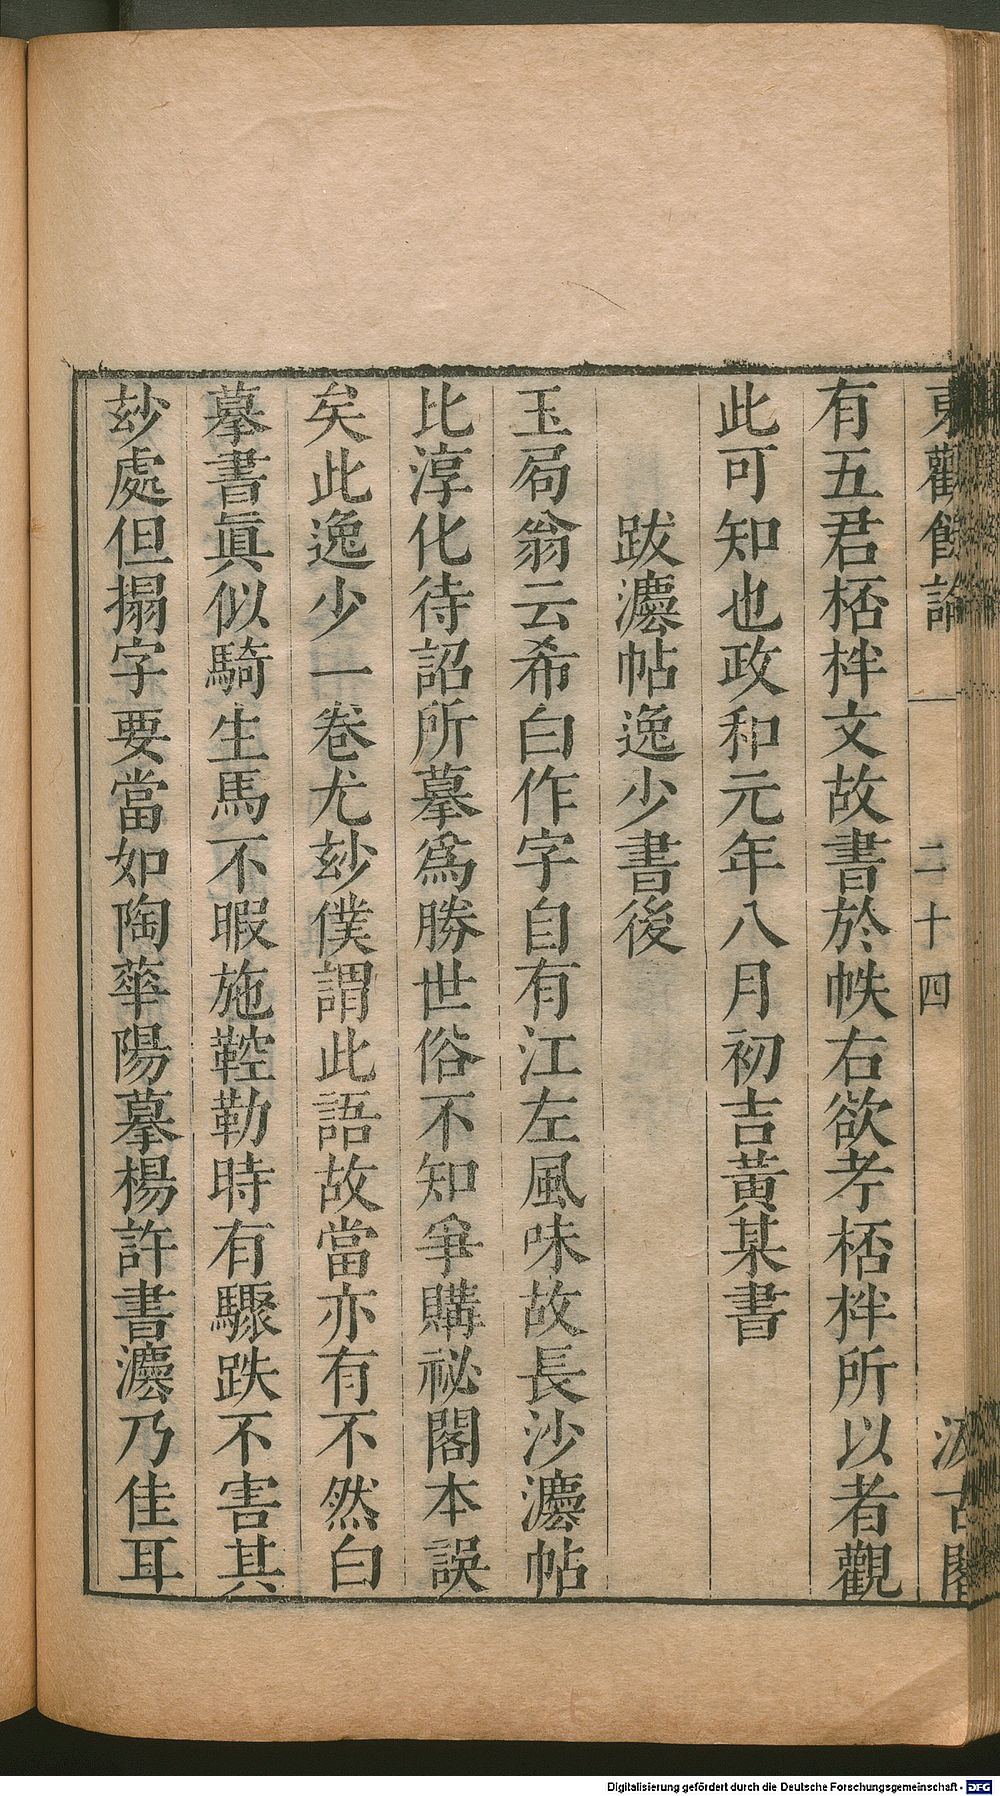 東觀餘論
二十四
汲古閣
有五君桮柈文故書於帙右欲孝桮柈所以者觀
此可知也政和元年八月初吉黃某書
跋灋帖逸少書後
玉局翁云希白作字自有江左風味故長沙灋帖
比淳化待詔所摹爲勝世俗不知爭購祕閣本誤
矣此逸少一卷尤玅僕謂此語故當亦有不然白
摹書眞似騎生馬不暇施鞚勒時有驟跌不害其
玅處但搨字要當如陶華陽摹楊許書灋乃佳耳
Digitalisierung gefördert durch die Deutsche Forschungsgemeinschaft - DFG